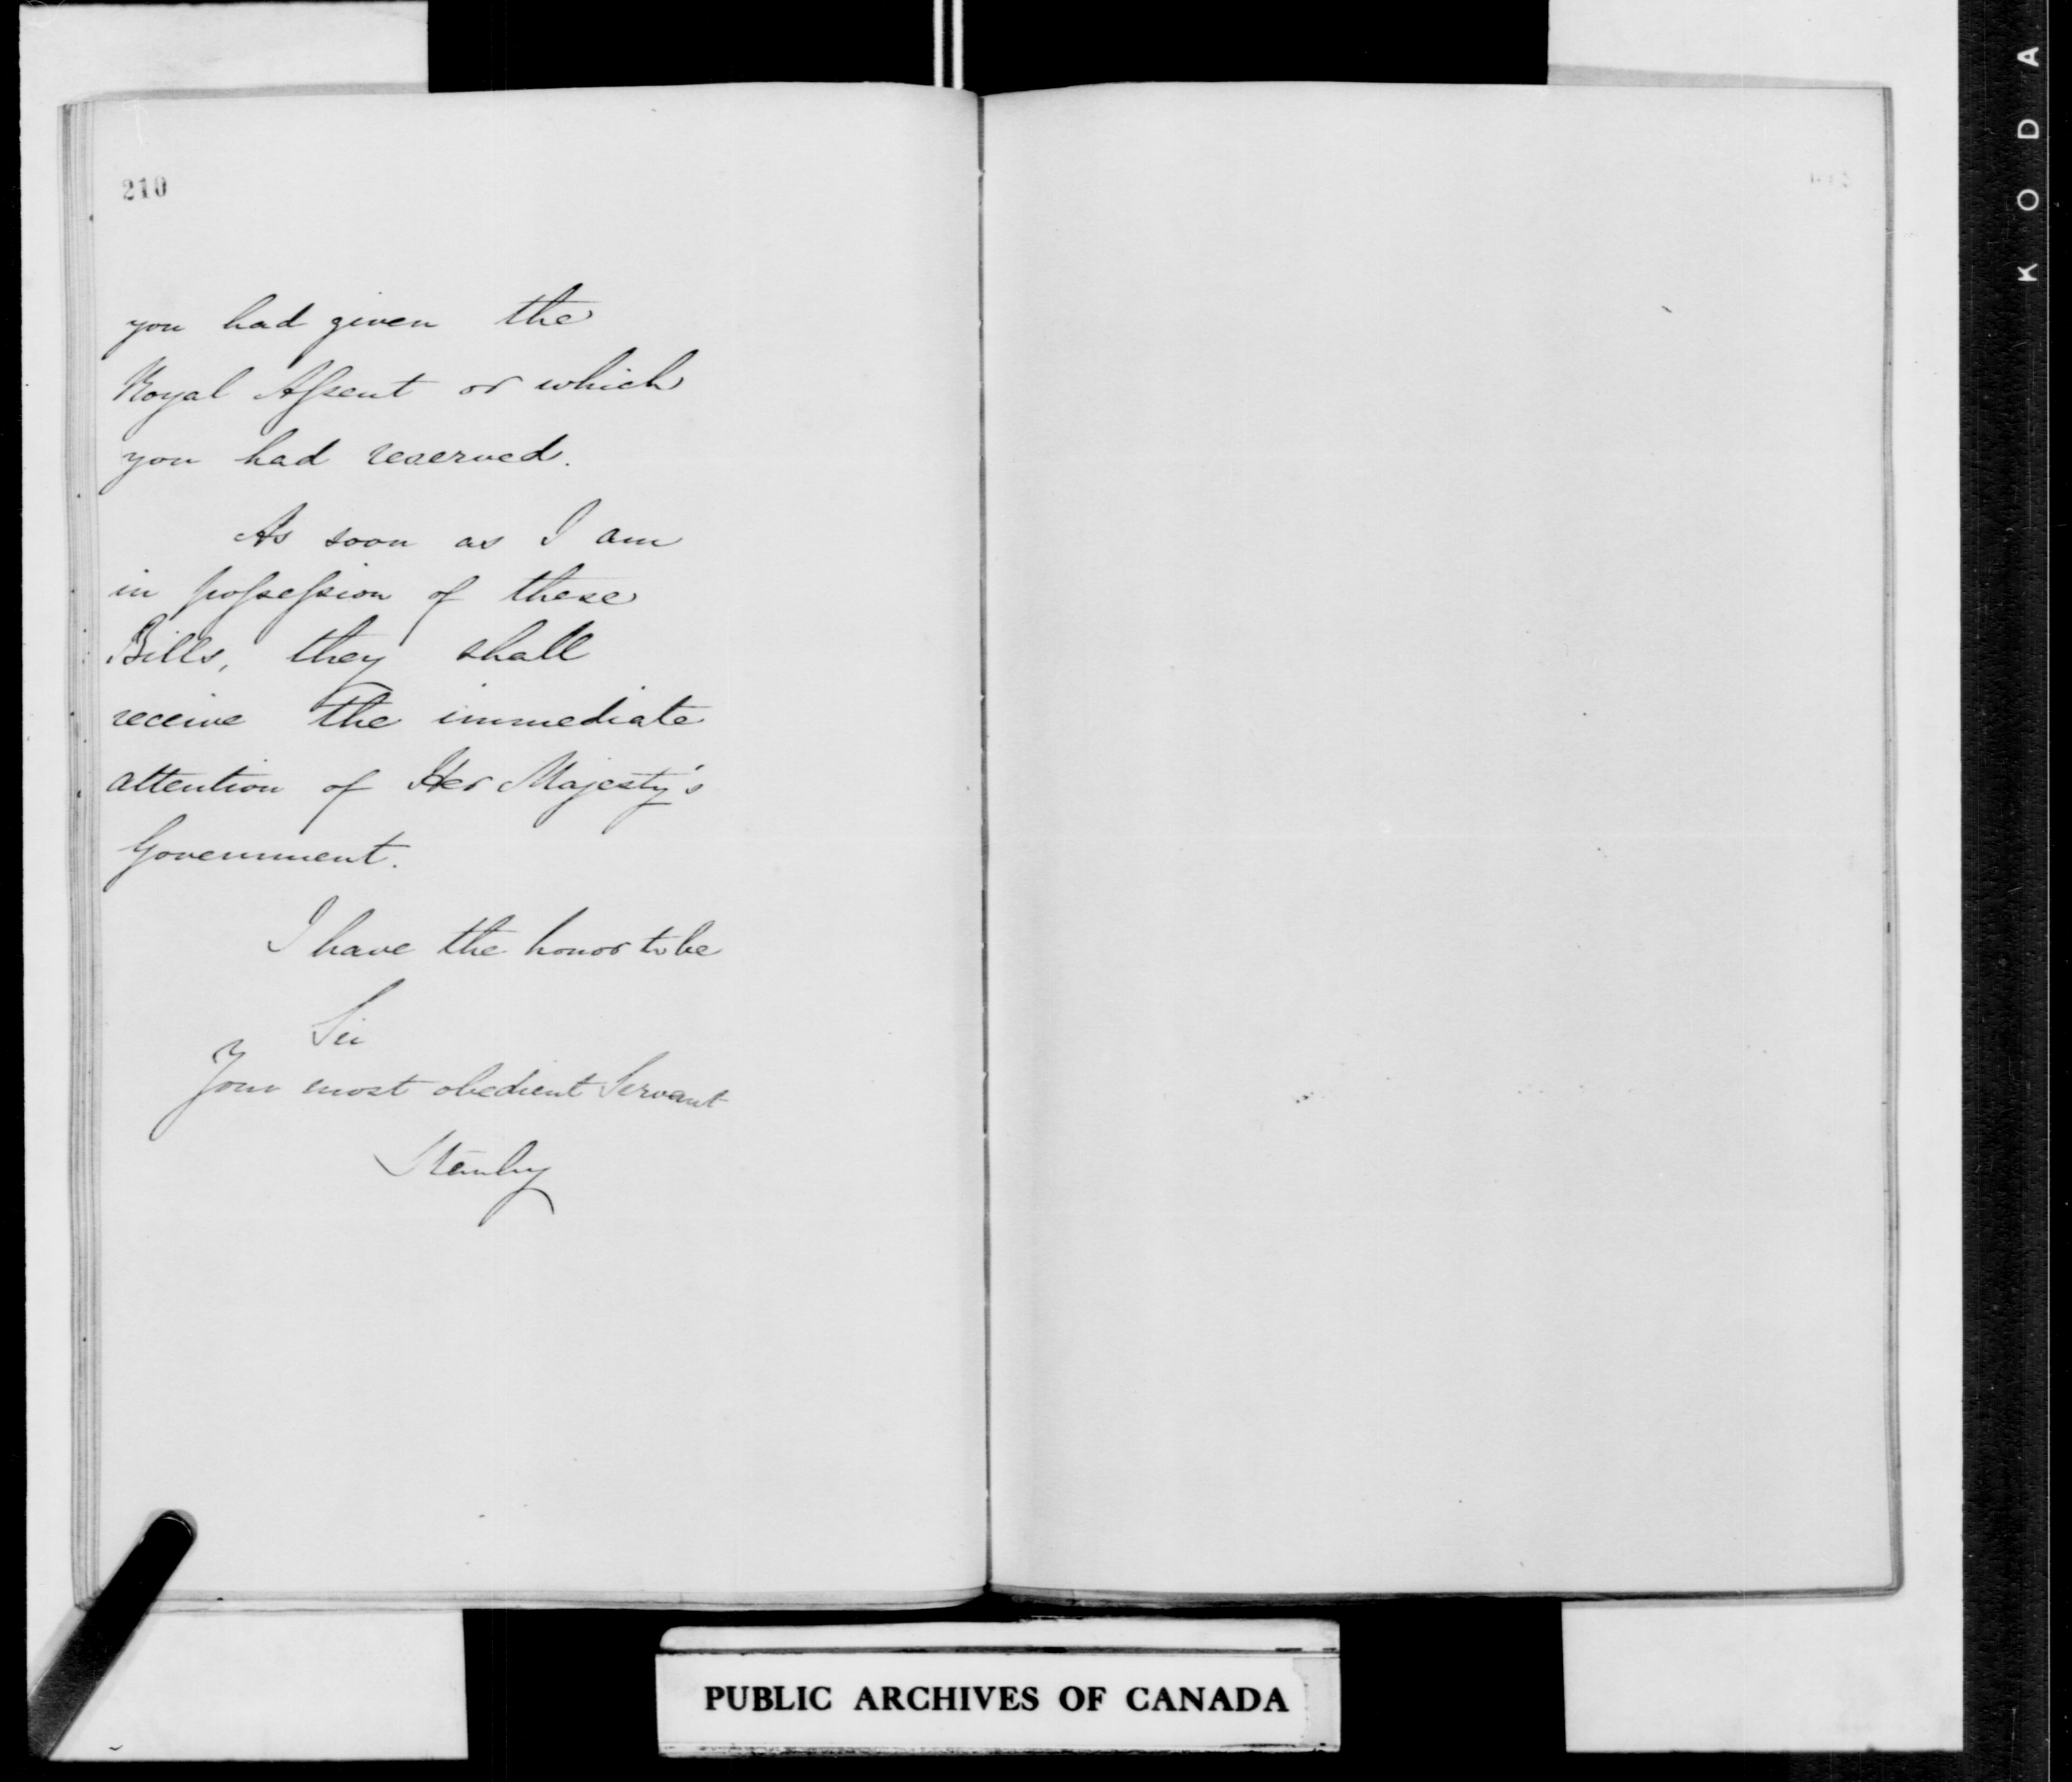 210
you had given the
Royal Assent or which
you had reserved.
As soon as I am
in possession of these
Bills, they shall
receive the immediate
attention of Her Majesty's
Government.
I have the honor to be
Sir
Your most obedient Servant
Stanley
PUBLIC ARCHIVES OF CANADA
KODA